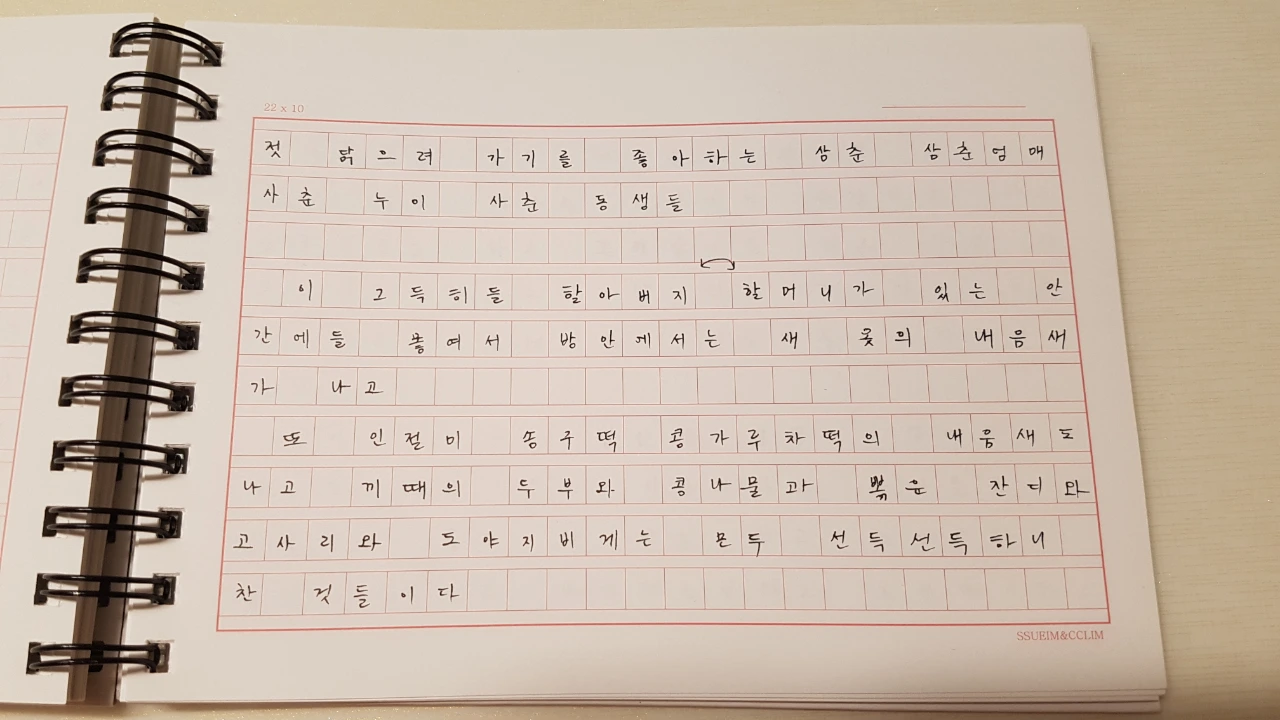 22 x 10
젓 닭으려 가기를 좋아하는 삼춘 삼춘엄매
사춘 누이 사춘 동생들
이 그득히들 할아버지 할머니가 있는 안
간에들 뫃여서 방안에서는 새 옷의 내음새
가 나고
또 인절미 송구떡 콩가루차떡의 내움새도
나고 끼때의 두부와 콩나물과 뽂운 잔디와
고사리와 도야지비게는 모두 선득선득하니
찬 것들이다
SSUEIM&CCLIM